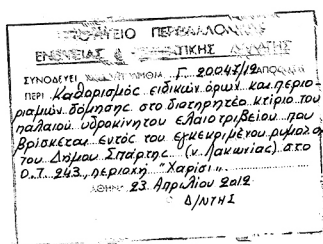 ΥΠΟΥΡΓΕΙΟ ΠΕΡΙΒΑΛΛΟΝ
ΕΝΕΡΓΕΙΑΣ & ΚΛΙΜΑΤΙΚΗΣ ΑΛΛΑΓΗΣ
ΣΥΝΟΔΕΥΕΙ ΤΗΝ ΥΠ' ΑΡΙΘΜ Γ 20047/12 ΑΠΟΦ
ΠΕΡΙ Καθορισμός ειδικών όρων και περιο-
ρισμών δόμησης στο διατηρητέο κτίριο του
παλαιού υδροκίνητου ελαιοτριβείου που
βρίσκεται εντός του εγκεκριμένου ρυμο/κού
του Δήμου Σπάρτης (ν. Λακωνίας) στο
Ο.Τ. 243, περιοχή "Χαρίσι".
ΑΘΗΝΑ 23 Απριλίου 2012
Δ/ΝΤΗΣ